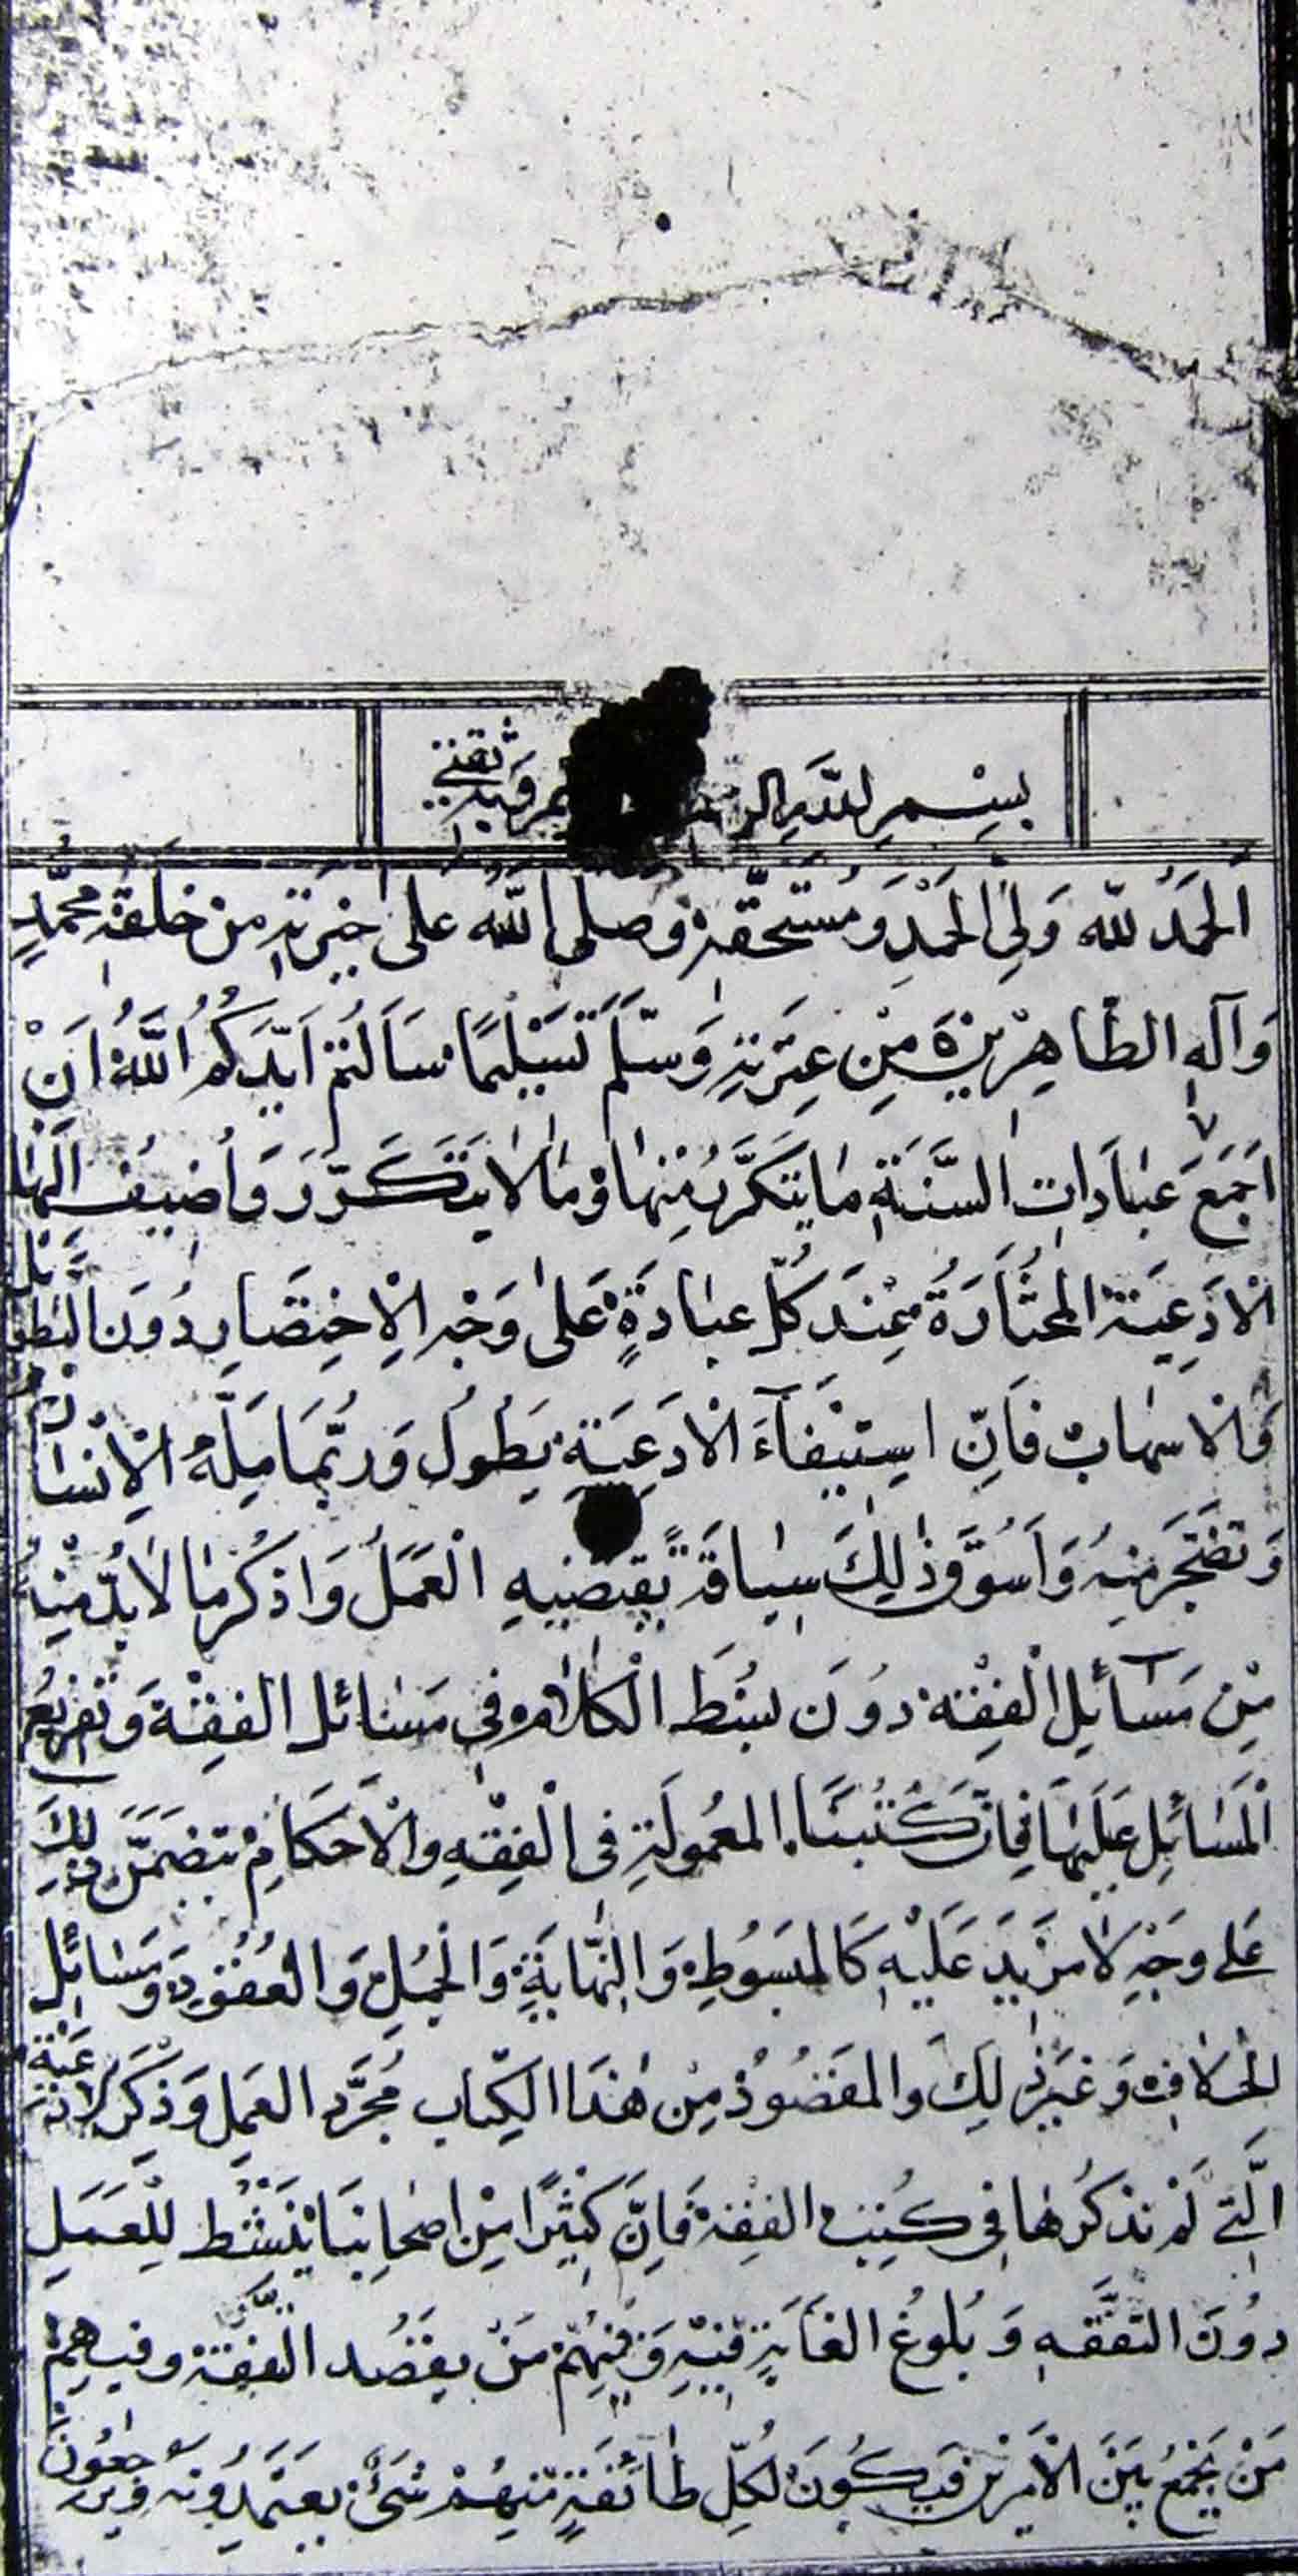 بِسْمِ اللَّهِ الر وَبِهِ ثِقَتِي
اَلْحَمْدُ لله وَلِيِّ الْحَمْدِ وَمُسْتَحَقِّهِ وَصلى اللهُ عَلى خِيَرَتِهِ مِنْ خَلْقِهِ مُحَمَّدٍ
وَآلِهِ الطَّاهِرِينَ مِنْ عِتْرَتِهِ وَسَلَّمَ تَسْلِيمًا سَاَلْتُمْ اَيَّدَكُمُ اللَّهُ اَنْ
اَجْمَعَ عِبَادَاتِ السَّنَةِ مَا يَتَكَرَّرُ مِنْهَا وَمَا لَا يَتَكَرَّرُ وَأُضِيفُ اِلَيْهَا
الْاَدْعِيَةَ الْمُخْتَارَةَ عِنْدَ كُلِّ عِبَادَةٍ عَلى وَجْهِ الْاِخْتِصَارِ دُونَ التَّطْوِيلِ
وَالْاِسْهَابِ فَاِنَّ اسِتِيفَآءَ الْاَدْعِيَةِ يَطُولُ وَرُبَّمَا مَلَّهُ الْاِنْسَانُ
وَتَضَجَّرَ مِنْهُ وَاَسُوقُ ذٰلِكَ سِيَاقَةً يَقْتَضِيهِ الْعَمَلُ وَاذْكُرُ مَا لَابُدَّ مِنْهُ
مِنْ مَسَائِلِ الْفِقْهِ دُونَ بَسْطِ الْكَلَامِ فِي مَسَائِلِ الْفِقْهِ وَتَفْرِيعُ
الْمَسَائِلِ عَلَيْهَا فَاِنَّ كُتُبَنَا الْمَعْمُولَةِ فِي الْفِقْهِ وَالْاَحْكَامِ تَتَضَمَّنُ ذٰلِكَ
عَلى وَجْهٍ لَا مَزِيدَ عَلَيْهِ كَالْمَبْسُوطِ وَالنِّهَايَةِ وَالْجُمَلِ وَالْعُقُودِ وَمَسَائِلِ
الْخِلَافِ وَغَيْرِ ذٰلِكَ وَالْمَقْصُودُ مِنْ هٰذَا الْكِتَابِ مُجَرَّدِ الْعَمَلِ وَذِكْرُ الْادعية
الَّتِي لَمْ نَذْكُرْهَا فِي كُتُبِ الْفِقْهِ فَاِنَّ كَثِيرًا مِنْ اَصْحَابِنَا يَنْشَطُ لِلْعَمَلِ
دُونَ التَّفَقُّهِ وَبُلُوغُ الْغَايَةِ فِيهِ وَمِنْهُمْ مَنْ يَقْصُدُ التَّفَقُّهَ وَفِيهِمْ
مَنْ يَجْمَعُ بَيْنَ الْاَمْرَيْنِ فَيَكُونَ لِكُلِّ طَائِفَةٍ مِنْهُمْ شَيْءٌ يَعْتَمِدُونَهُ وَيَرْجِعُونَ